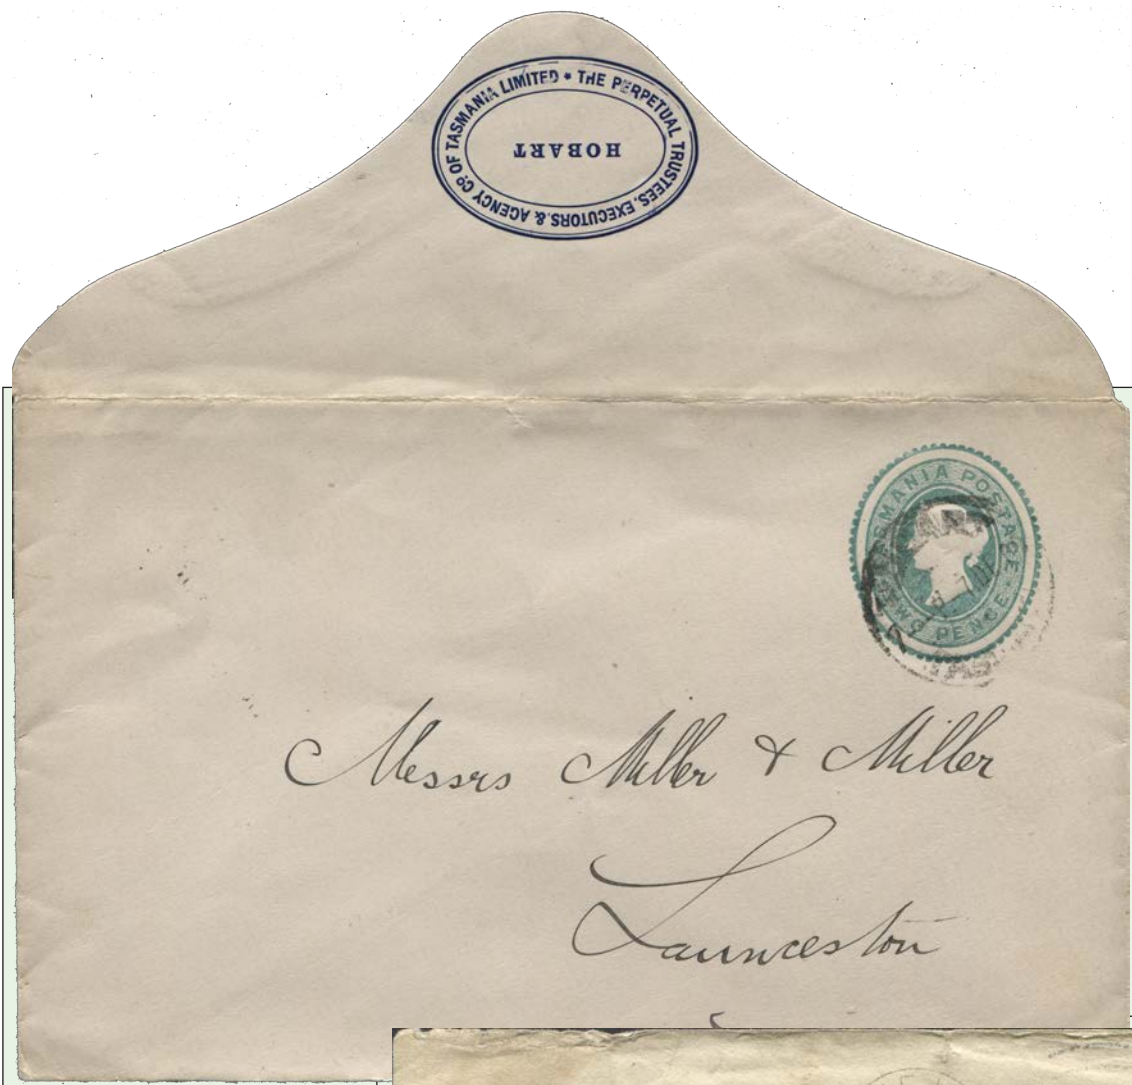 THE PERPETUAL TRUSTEES, EXECUTORS, & AGENCY Co. OF TASMANIA LIMITED *
HOBART
TASMANIA POSTAGE
TWO PENCE
Messrs Miller & Miller
Launceston